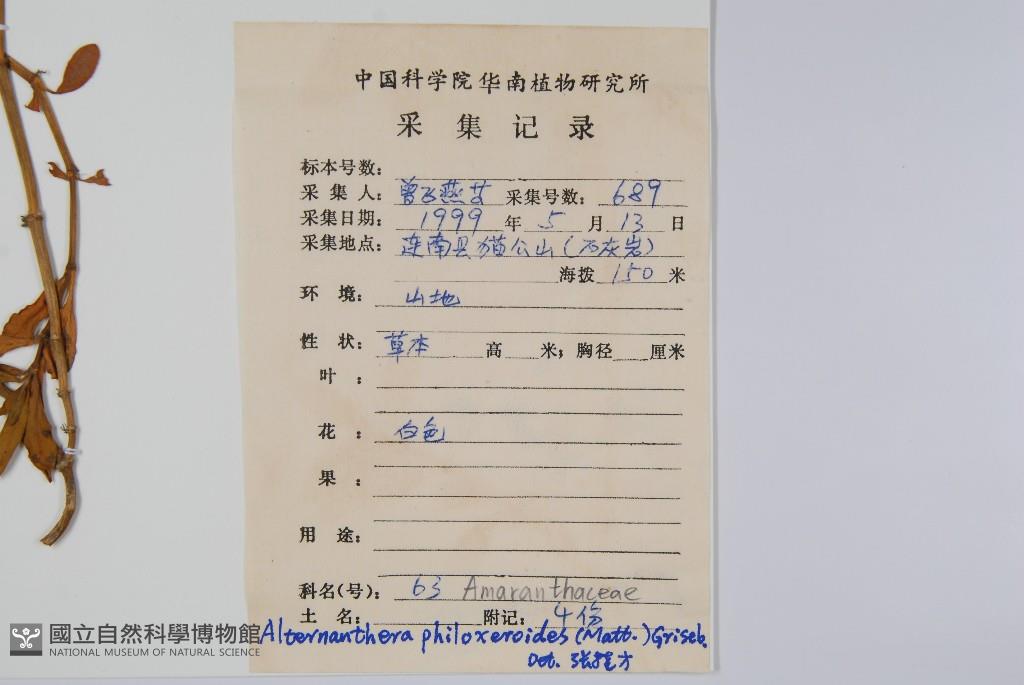 中国科学院华南植物研究所
采集记录
标本号数:
采集人: 曾飞燕等 采集号数: 689
采集日期: 1999 年 5 月 13 日
采集地点: 连南县猫公山(石灰岩)
海拨 150 米
环境: 山地
性状: 草本 高 米; 胸径 厘米
叶:
花: 白色
果:
用途:
科名(号): 63 Amaranthaceae
土名: 附记: 4份
Alternanthera philoxeroides (Matt.) Griseb.
Det. 张
國立自然科學博物館
NATIONAL MUSEUM OF NATURAL SCIENCE